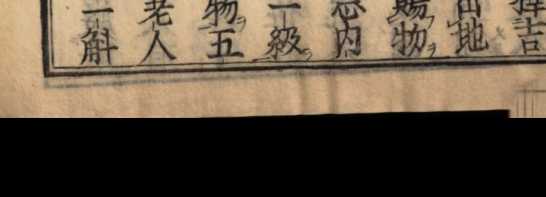 擇吉
田地
賜物
悉内
一級
物五
老人
一斛